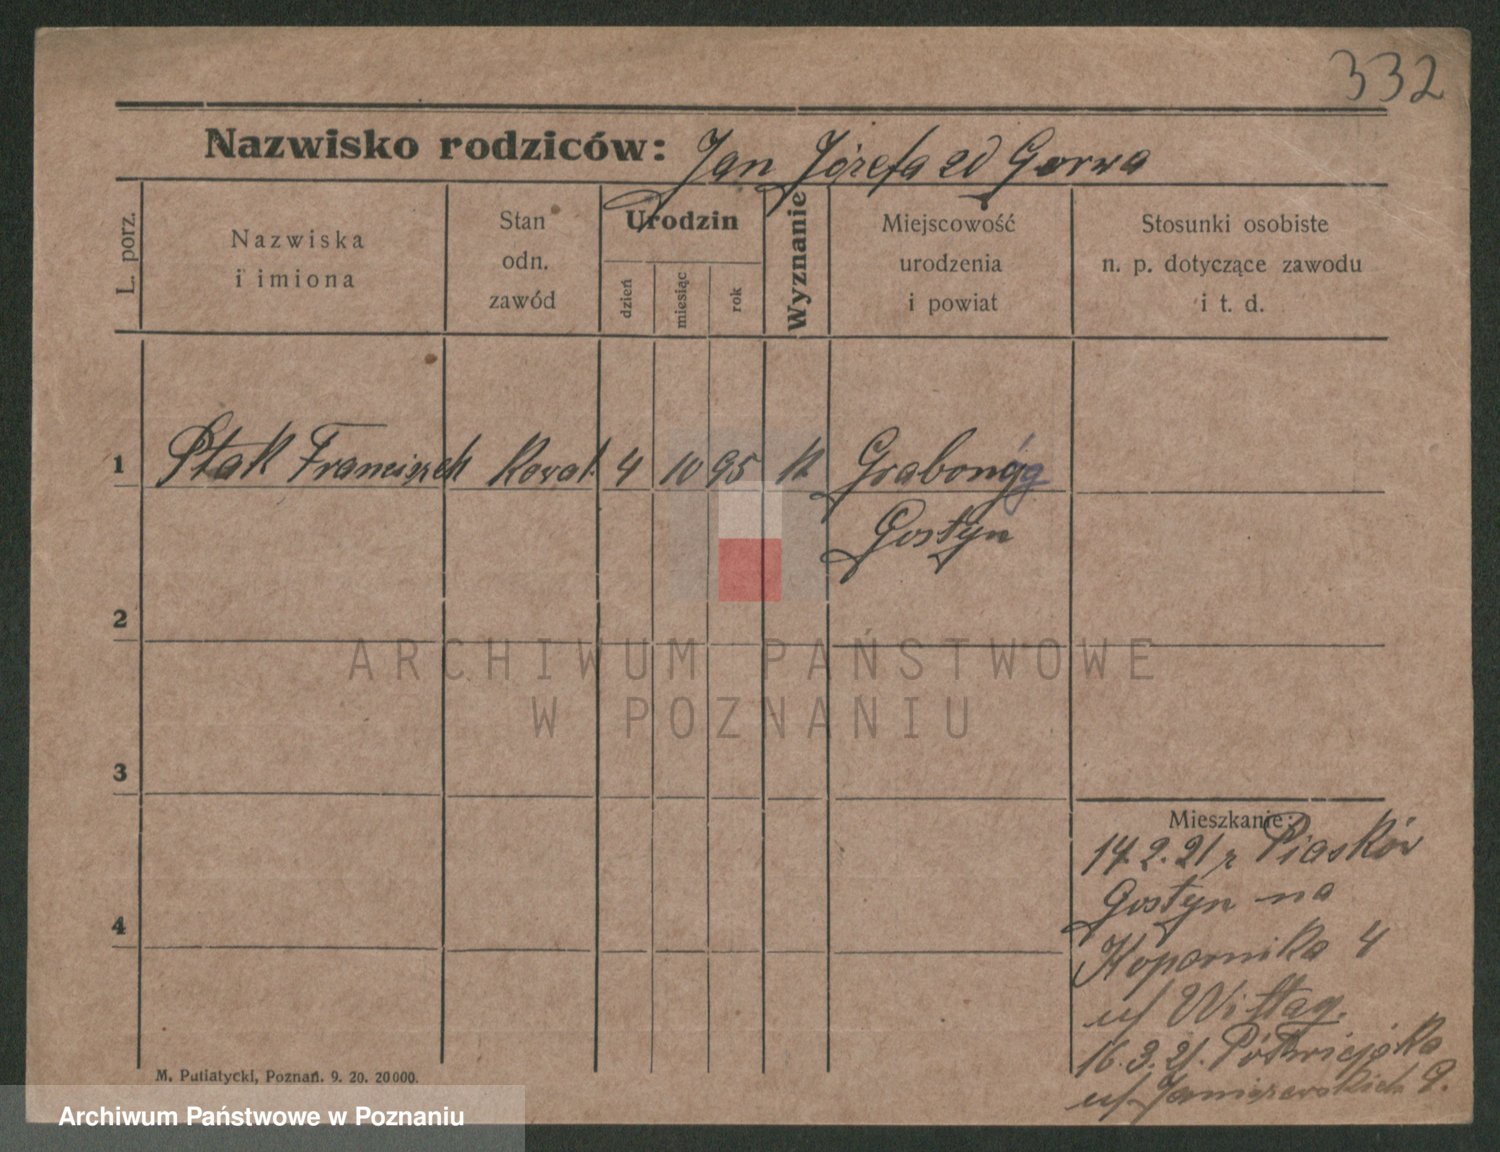 332
Nazwisko rodziców: Jan Józefa zd Gorwa
L. porz.
Nazwiska
i imiona
Stan
odn.
zawód
Urodzin
dzień
miesiąc
rok
Wyznanie
Miejscowość
urodzenia
i powiat
Stosunki osobiste
n. p. dotyczące zawodu
i t. d.
1 Ptak Franciszek Kowal. 4 10 95 k Grabonóg
Gostyn
2
ARCHIWUM PAŃSTWOWE
W POZNANIU
3
Mieszkanie:
14.2.21 z Piasków
Gostyn na
4
Kopernika 4
u/ Wittag.
16.3.21. Półwiejska
u/ Janiszewskich 9.
M. Putiatycki, Poznań. 9. 20. 20000.
Archiwum Państwowe w Poznaniu